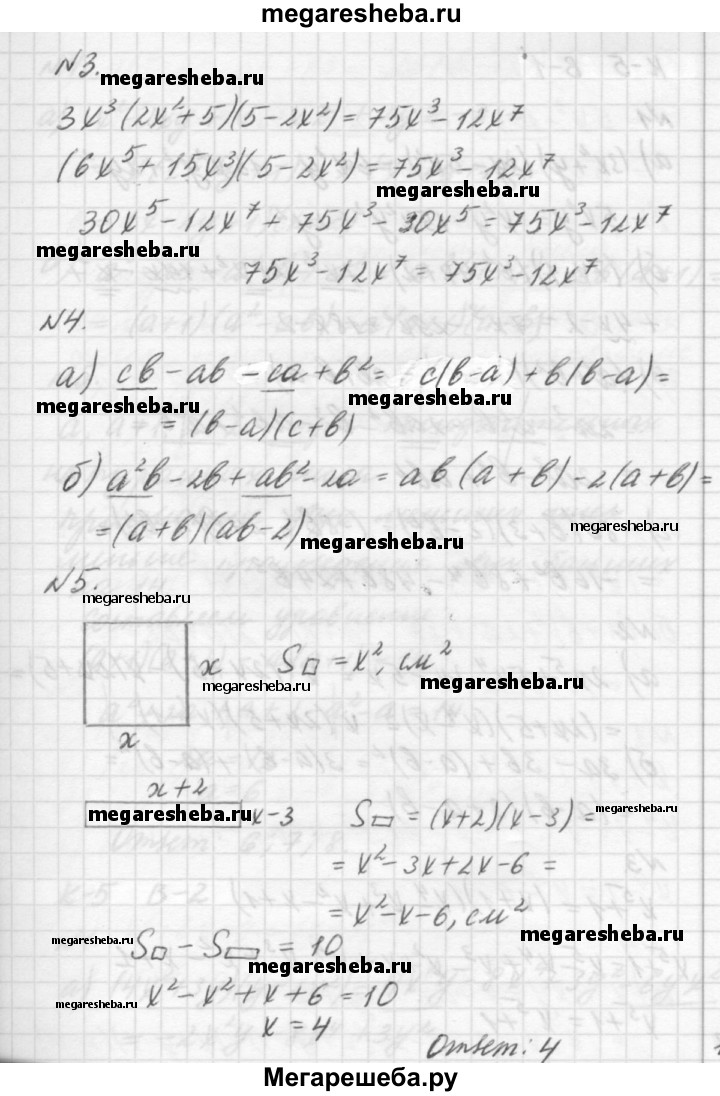 megaresheba.ru
N3.
megaresheba.ru
3x³(2x²+5)(5-2x²)=75x³-12x⁷
(6x⁵+15x³)(5-2x²)=75x³-12x⁷
megaresheba.ru
30x⁵-12x⁷+75x³-30x⁵=75x³-12x⁷
megaresheba.ru
75x³-12x⁷=75x³-12x⁷
N4.
а) cв-aв-ca+в²= c(в-a)+в(в-a)=
megaresheba.ru megaresheba.ru
=(в-a)(c+в)
б) a²в-2в+aв²-2a=aв(a+в)-2(a+в)=
megaresheba.ru
=(a+в)(aв-2)
megaresheba.ru
N5.
megaresheba.ru
x S□=x², см²
megaresheba.ru megaresheba.ru
x
x+2
megaresheba.ru x-3 S▭=(x+2)(x-3)=
megaresheba.ru
=x²-3x+2x-6=
=x²-x-6, см²
megaresheba.ru
megaresheba.ru S□-S▭=10
megaresheba.ru
megaresheba.ru x²-x²+x+6=10
x=4
Ответ: 4
Мегарешеба.ру